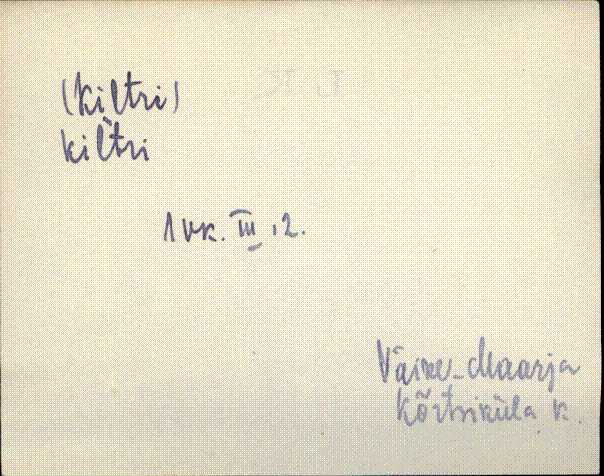 (kiltri)
kiltri
1 vk. III, 2.
Väike-Maarja
Kõrtsiküla k.